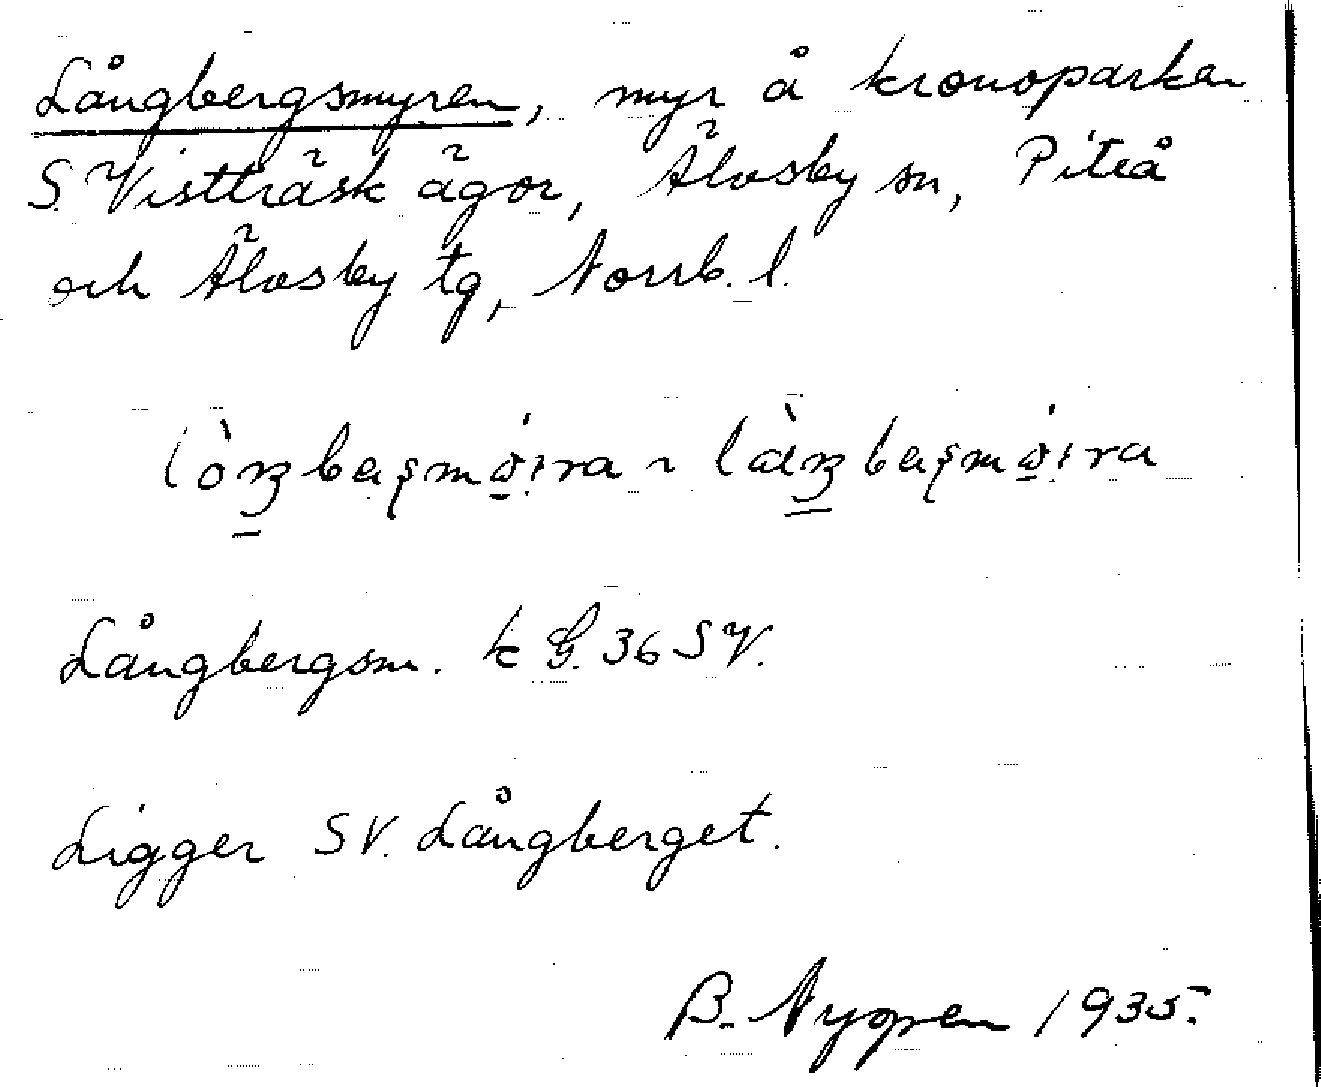 Långbergsmyren, myr å kronoparken
S. Vistträsk ägor, Älvsby sn, Piteå
och Älvsby tg, Norrb. l.
Långbergsm. k G. 36 SV.
Ligger SV. Långberget.
B. Nygren 1935.